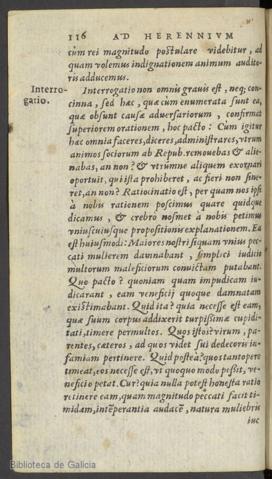 116 AD HERENNIVM
cùm rei magnitudo postulare videbitur, ad
quam volemus indignationem animum audito-
ris adducemus.
Interro-
gatio.
Interrogatio non omnis grauis est, neq; con-
cinna, sed hæc, quæ cum enumerata sunt ea,
quæ obsunt causæ aduersariorum, confirmat
superiorem orationem, hoc pacto: Cùm igitur
hæc omnia faceres, diceres, administrares, vtrum
animos sociorum ab Repub. remouebas & alie-
nabas, an non? & vtrùmne aliquem exornari
oportuit, qui ista prohiberet, ac fieri non sine-
ret, an non? Ratiocinatio est, per quam nos ipsi
à nobis rationem poscimus quare quidque
dicamus, & crebrò nosmet à nobis petimus
vniuscuiusque propositionis explanationem. Ea
est huiusmodi: Maiores nostri siquam vnius pec-
cati mulierem damnabant, simplici iudicio
multorum maleficiorum conuictam putabant.
Quo pacto? quoniam quam impudicam iu-
dicarant, eam veneficij quoque damnatam
existimabant. Quid ita? quia necesse est eam,
quæ suum corpus addixerit turpissimæ cupidi-
tati, timere permultos. Quos istos? virum, pa-
rentes, cæteros, ad quos videt sui dedecoris in-
famiam pertinere. Quid postea? quos tantopere
timeat, eos necesse est, vt quoquo modo possit, ve-
neficio petat. Cur? quia nulla potest honesta ratio
retinere eam, quam magnitudo peccati facit ti-
midam, intẽperantia audacẽ, natura muliebris
inc
Biblioteca de Galicia